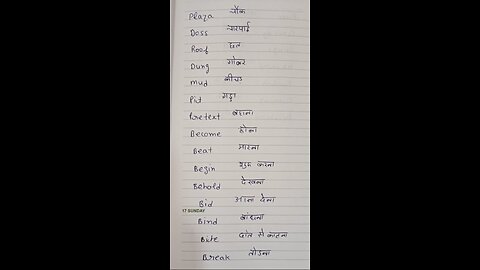 Plaza चौक
Doss चारपाई
Roof छत
Dung गोबर
Mud कीचड़
Pit गड्ढा
Pretext बहाना
Become होना
Beat मारना
Begin शुरू करना
Behold देखना
Bid आज्ञा देना
17 SUNDAY
Bind बांधना
Bite दांत से काटना
Break तोडना